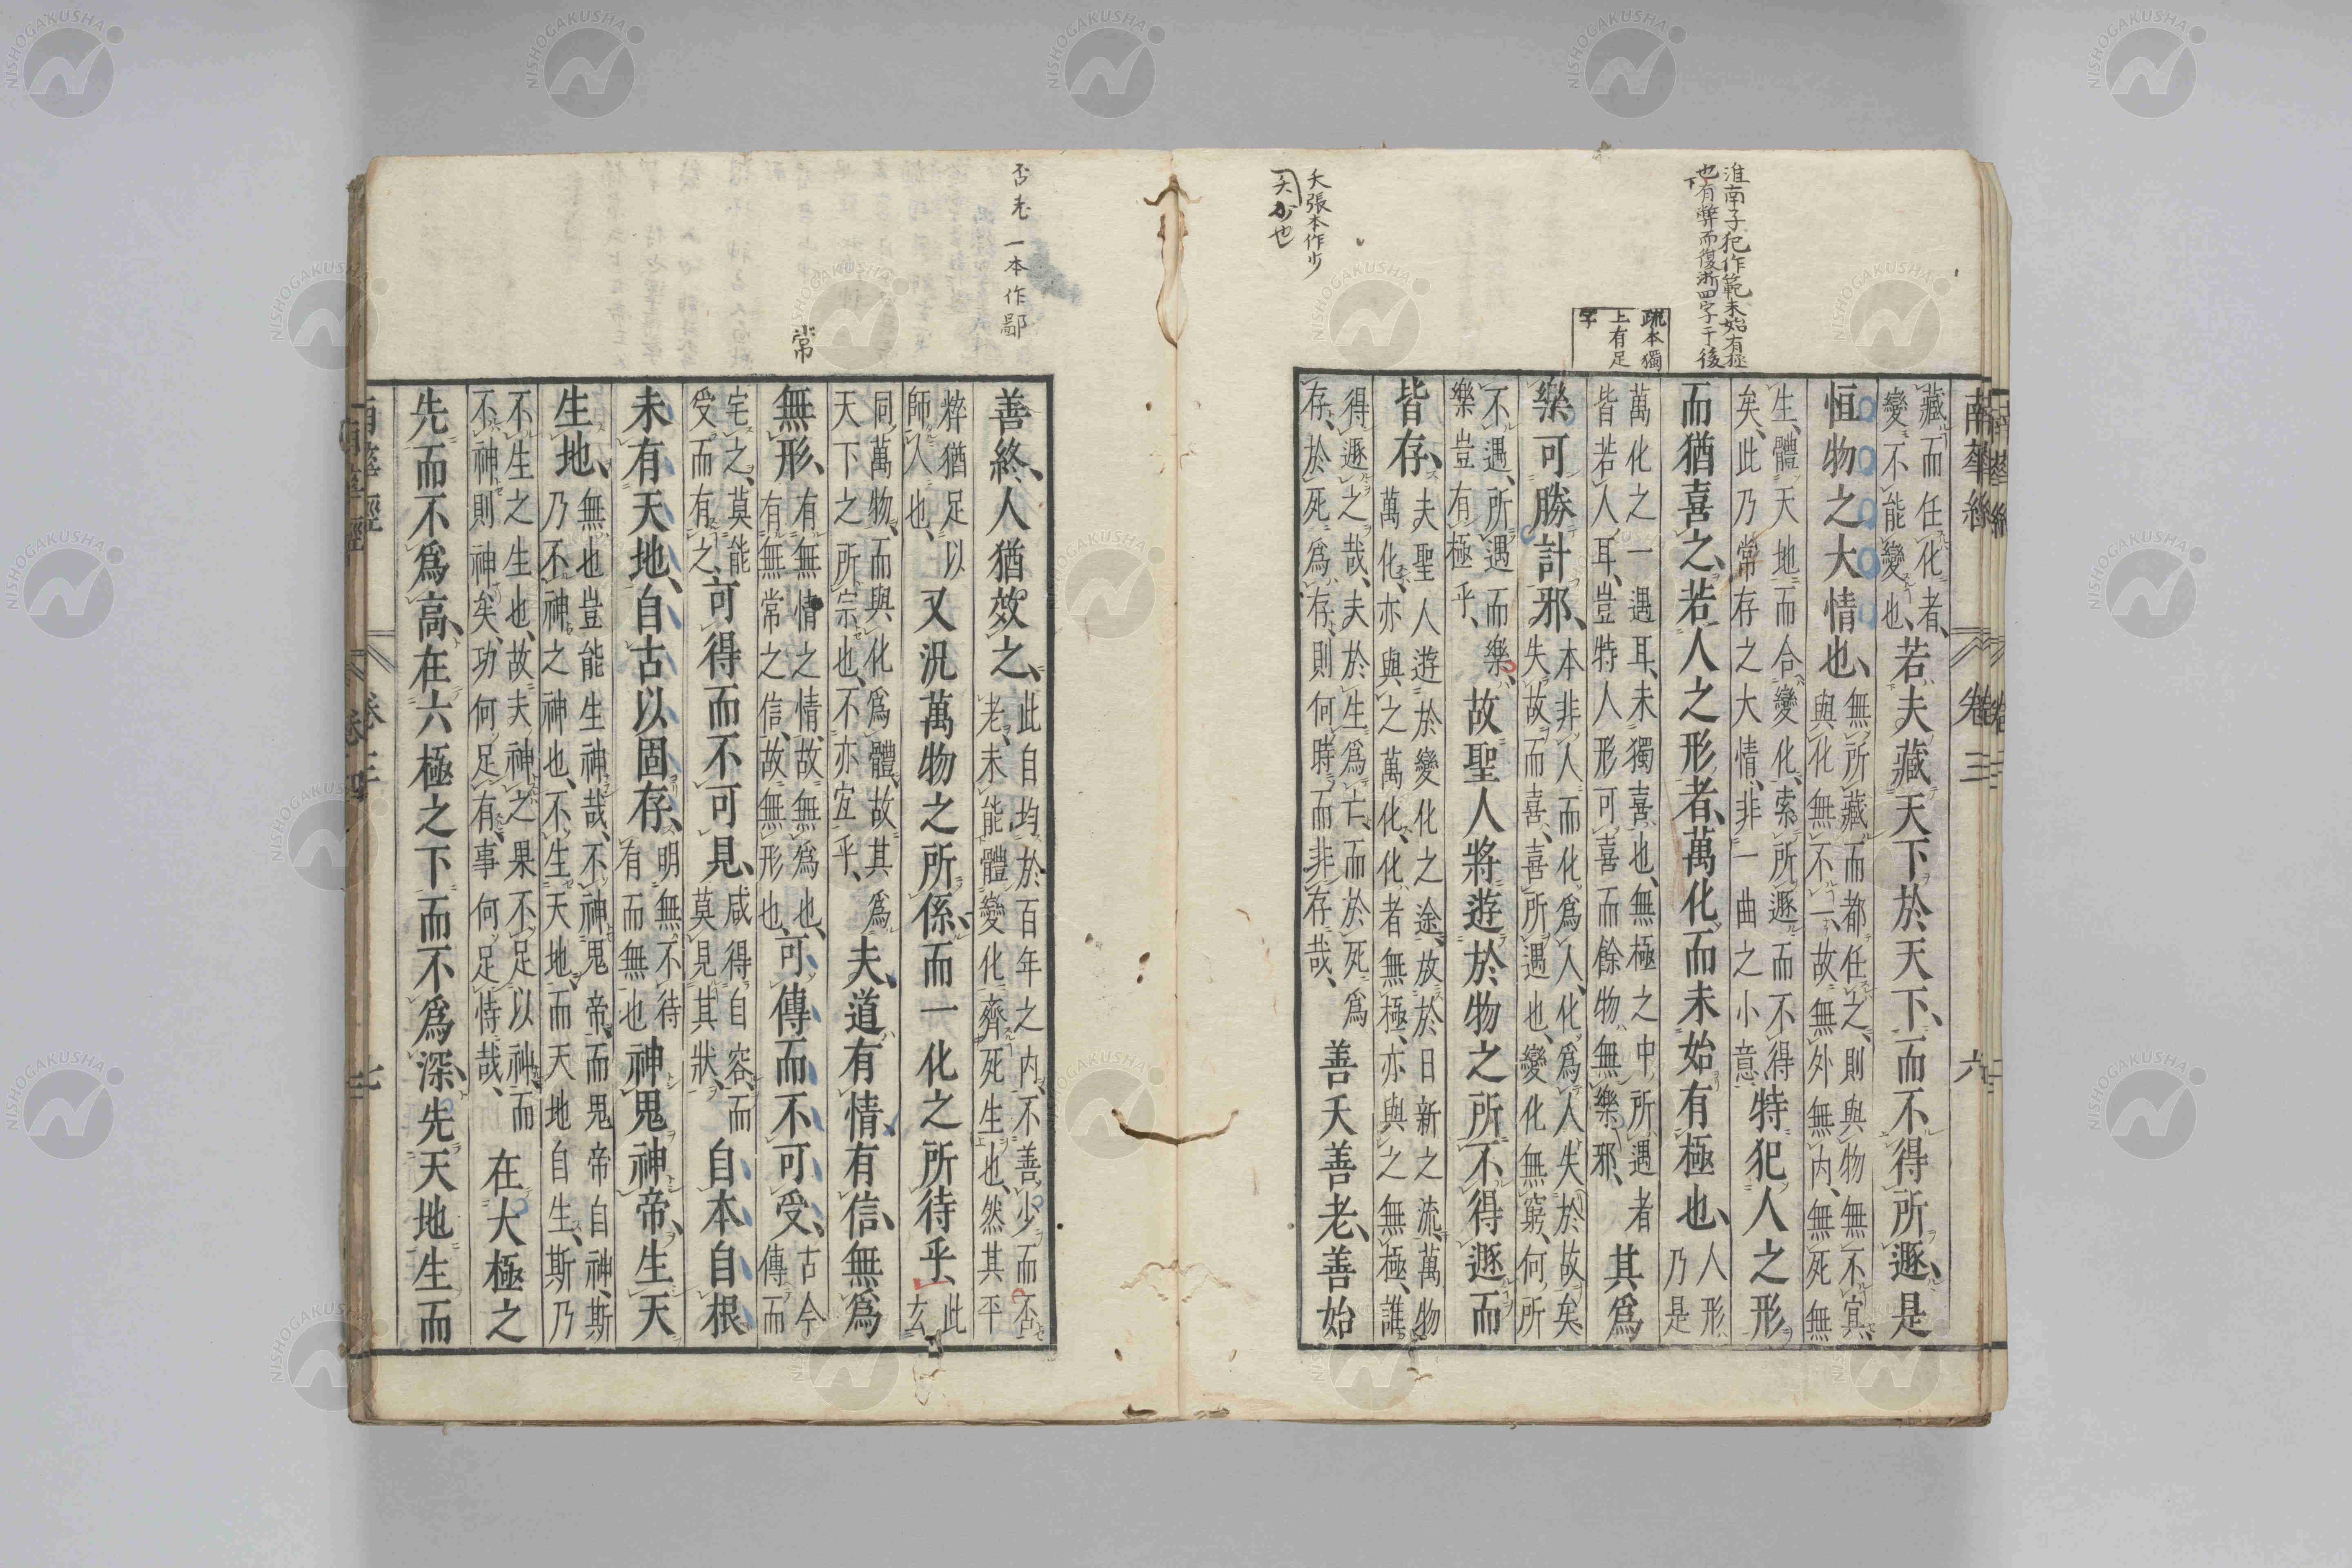 淮南子犯作範未始有極
也下有弊而復新四字于後
疏本獨
上有足
字
夭張本作少
夭少也
南華經
卷三
六
藏而任化者、變不能變也、若夫藏天下於天下、而不得所遯、是
恒物之大情也、無所藏而都任之、則與物無不宜、與化無不一、故無外無内、無死無
生、體天地而合變化、索所遯而不得矣、此乃常存之大情、非一曲之小意特犯人之形
而猶喜之、若人之形者、萬化而未始有極也、人形乃是
萬化之一遇耳、未獨喜也、無極之中、所遇者皆若人耳、豈特人形可喜而餘物無樂邪、其爲
樂可勝計邪、本非人而化爲人、化爲人失於故矣失、故而喜、喜所遇也、變化無窮、何所
不遇、所遇而樂、樂豈有極乎、故聖人將遊於物之所不得遯而
皆存、夫聖人遊於變化之途、放於日新之流、萬物萬化、亦與之萬化、化者無極、亦與之無極、誰
得遯之哉、夫於生爲亡、而於死爲存、於死爲存、則何時而非存哉、善夭善老、善始
否老一本作鄙
常
善終、人猶效之、此自均於百年之内、不善少而否老、未能體變化齊死生也、然其平
粹猶足以師人也、又況萬物之所係、而一化之所待乎、此玄
同萬物、而與化爲體、故其爲天下之所宗也、不亦宜乎、夫道有情、有信、無爲
無形、有無情之情、故無爲也、有無常之信、故無形也、可傳而不可受、古今傳而
宅之、莫能受而有之、可得而不可見、咸得自容、而莫見其狀、自本自根
未有天地、自古以固存、明無不待有而無也神鬼神帝、生天
生地、無也豈能生神哉、不神鬼帝、而鬼帝自神、斯乃不神之神也、不生天地、而天地自生、斯乃
不生之生也、故夫神之果不足以神、而不神則神矣、功何足有、事何足恃哉、在大極之
先而不爲高、在六極之下而不爲深、先天地生而
南華經
卷三
七